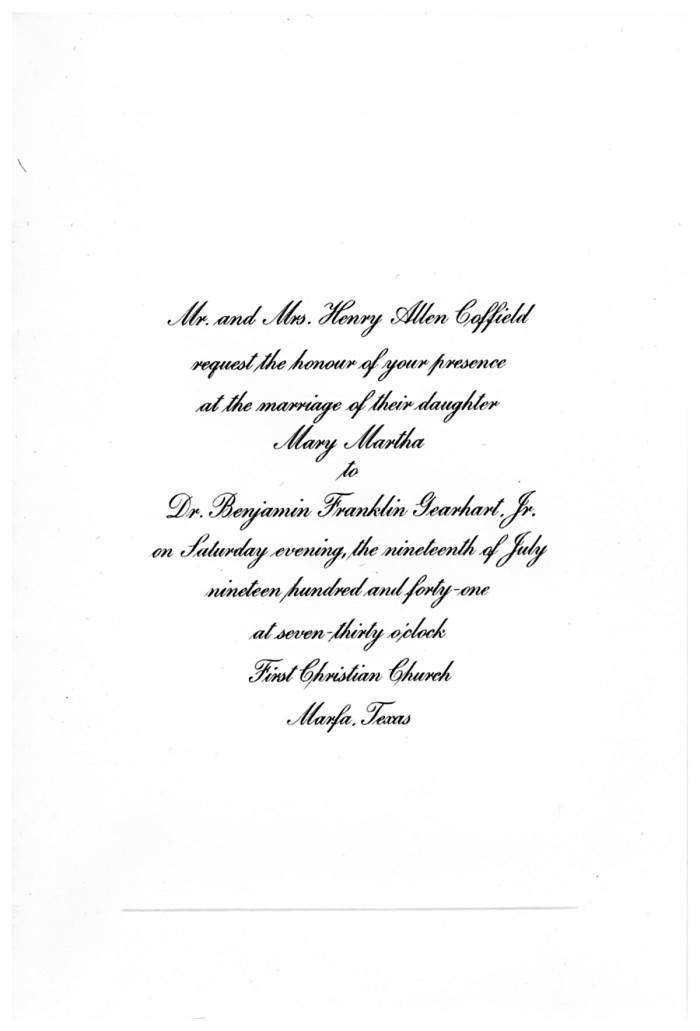 Mr. and Mrs. Henry Allen Coffield
request the honour of your presence
at the marriage of their daughter
Mary Martha
to
Dr. Benjamin Franklin Gearhart, Jr.
on Saturday evening, the nineteenth of July
nineteen hundred and forty-one
at seven-thirty o'clock
First Christian Church
Marfa, Texas